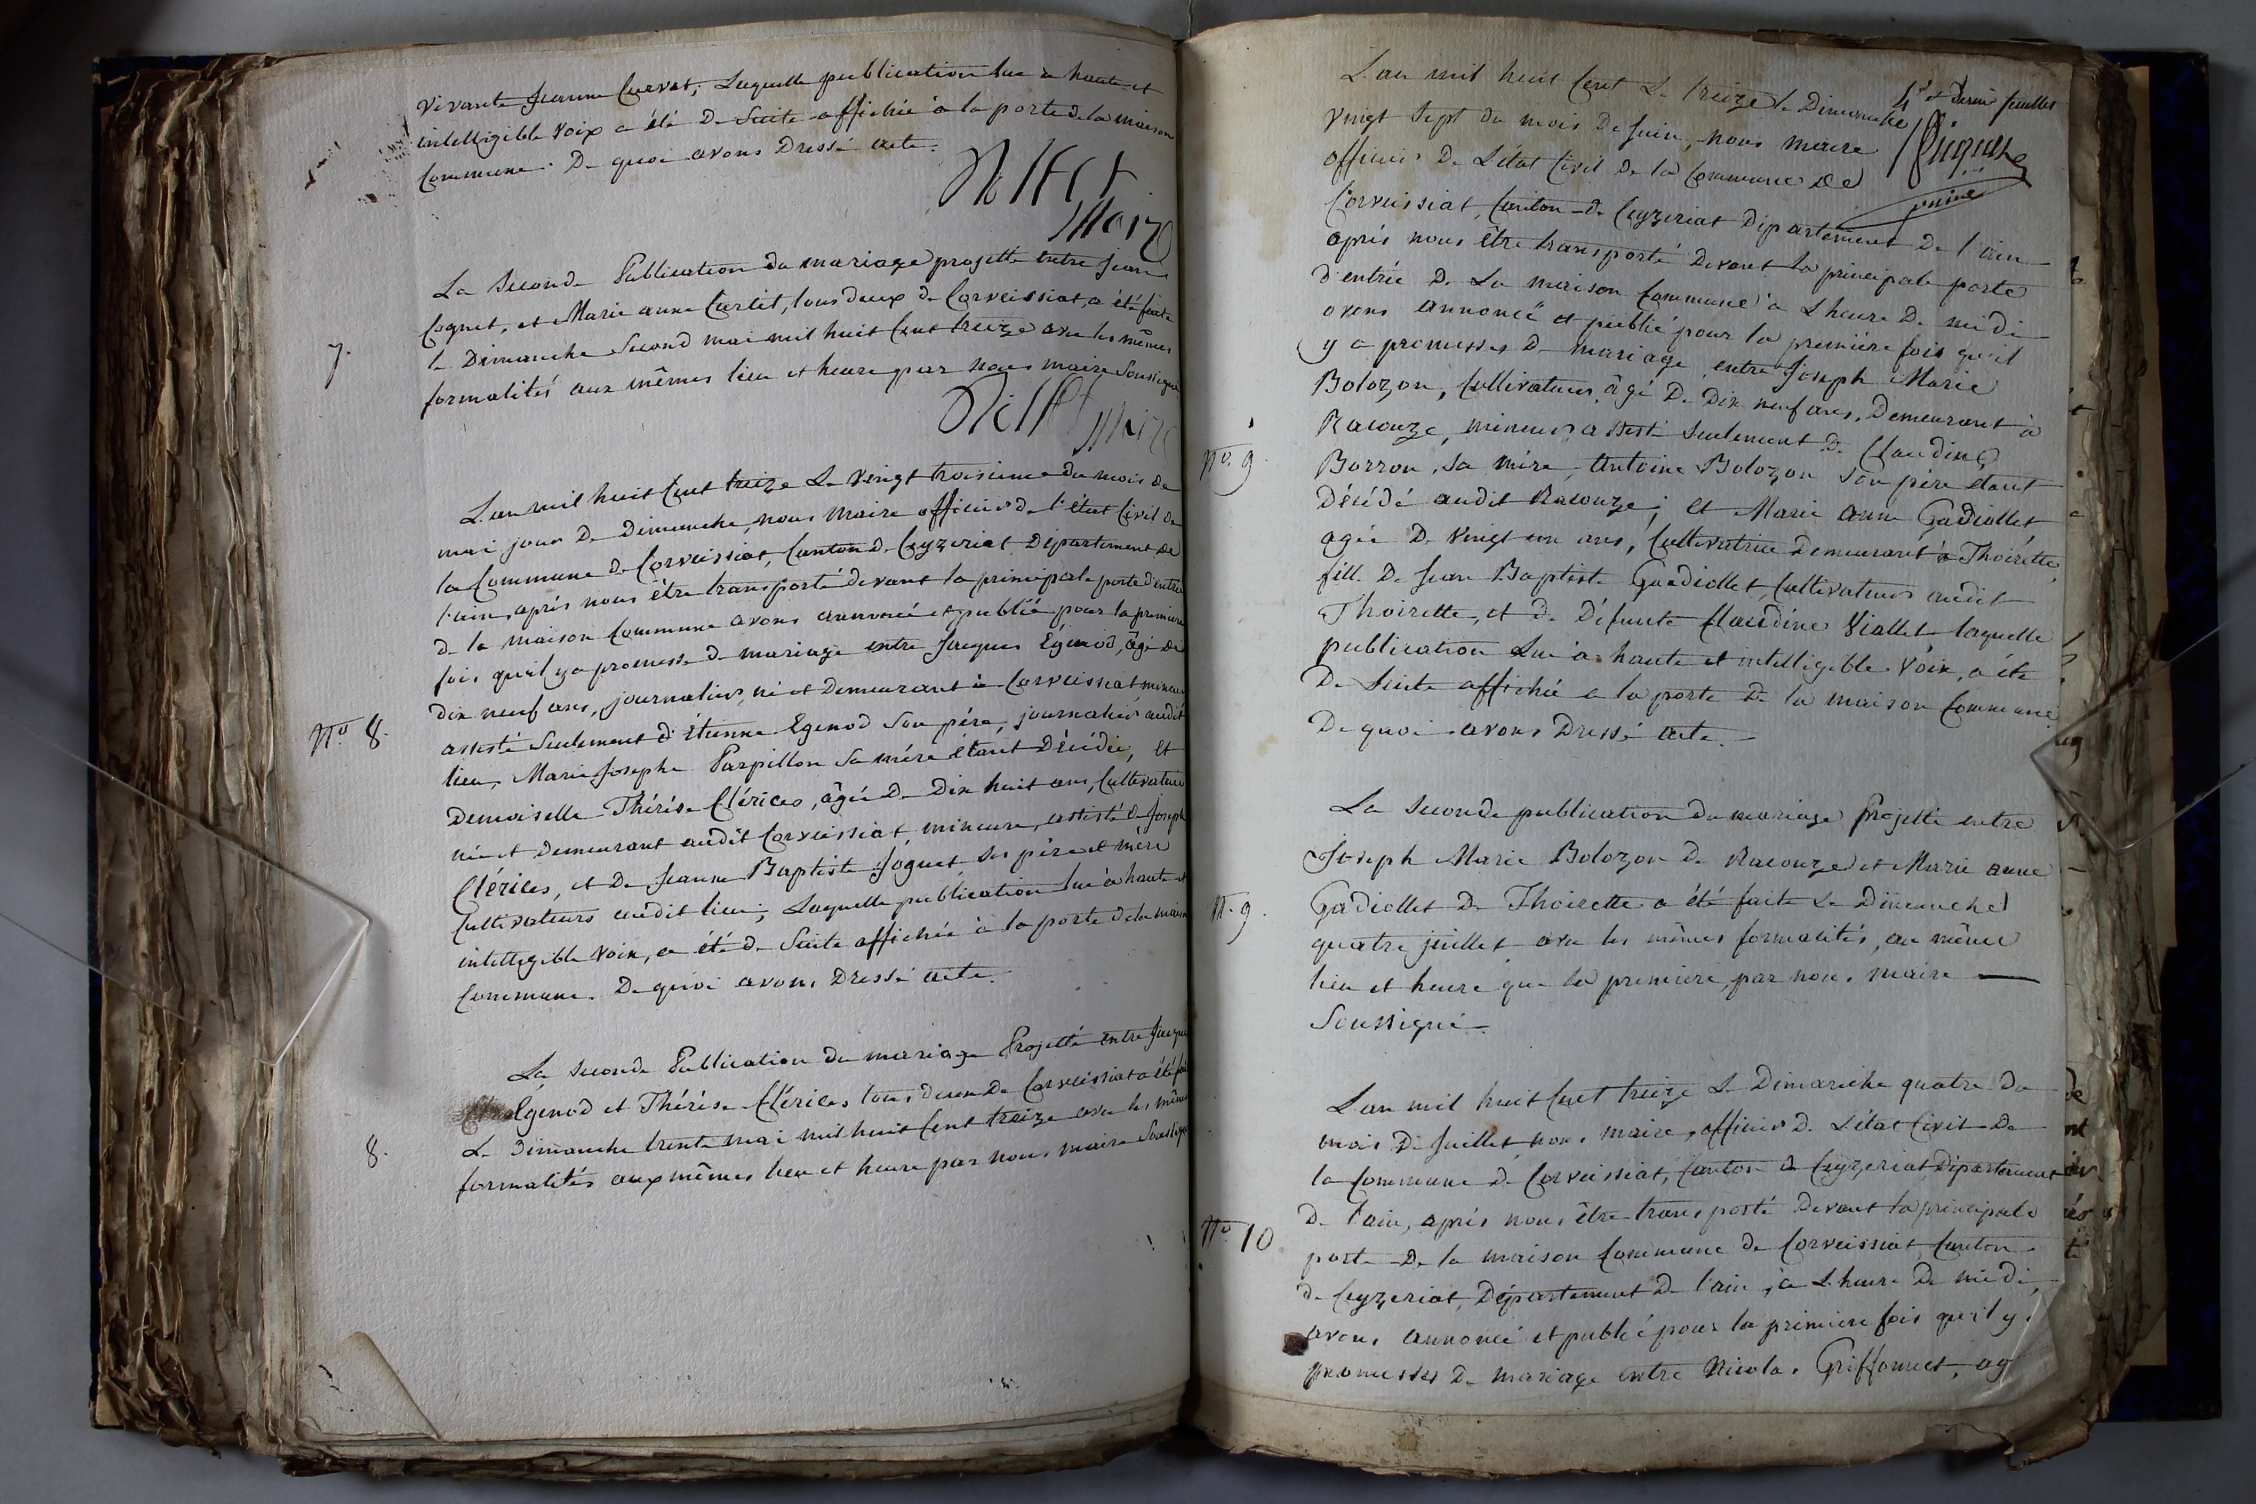 vivante Jeanne Curvat, Laquelle publication lue a haute et
intelligible voix a été De Suite affichée a la porte de la maison
Commune. De quoi avons Dressé acte.
Maire
La Seconde Publication du mariage projetté entre Jean
Coquet, et Marie anne Carlit, tous deux de Corveissiat, a été faite
7.
le Dimanche Second mai mil huit Cent treize avec les mêmes
formalités aux mêmes lieu et heure par nous maire Soussigné
Maire
L'an mil huit Cent treize Le Vingt troisième du mois de
mai jour De Dimanche, nous Maire officier de l'état Civil de
la Commune de Corveissiat, Canton de Ceyzeriat Département de
l'ain, après nous être transporté devant la principale porte d'entrée
de la maison Commune avons annoncé et publié pour la première
fois qu'il y a promesse de mariage entre Jacques Egenod, âgé de
dix neuf ans, journalier, né et Demeurant à Corveissiat mineur
Nº 8.
assisté Seulement d'étienne Egenod Son père, journalier audit
lieu, Marie Josephe Parpillon Sa mère étant Décédée, et
Demoiselle Thérèse Clérices, âgée De Dix huit ans, Cultivatrice
née et Demeurant audit Corveissiat, mineure, assistée de Joseph
Clérices, et De Jeanne Baptiste Joguet Ses père et mère
Cultivateurs audit lieu; Laquelle publication lue à haute et
intelligible voix, a été de Suite affichée à la porte de la maison
Commune. De quoi avons Dressé acte.
La Seconde Publication du mariage Projetté entre Jacques
Egenod et Thérèse Clérices tous deux de Corveissiat a été faite
8.
Le Dimanche trente mai mil huit Cent treize avec les mêmes
formalités aux mêmes lieu et heure par nous maire Soussigné
4e et Dernier feuillet
L'an mil huit Cent Le treize le Dimanche
vingt Sept du mois De Juin, nous maire
officier De L'état Civil De la Commune De
Corveissiat, Canton de Ceyzeriat Département De l'ain
après nous être transporté Devant la principale porte
d'entrée De La maison Commune à L'heure De midi
avons annoncé et publié pour la première fois qu'il
y a promesses De mariage entre Joseph Marie
Bolozon, Cultivateur, âgé De Dix neuf ans, Demeurant à
Racouze, mineur assisté Seulement De Claudine
Nº 9.
Borron, Sa mère, Antoine Bolozon Son père étant
Décédé audit Racouze; et Marie anne Gadiollet
agée De vingt un ans, Cultivatrice Demeurant à Thoirette,
fille De Jean Baptiste Gadiollet, Cultivateur audit
Thoirette, et De Défunte Claudine Viallet laquelle
publication Lue à haute et intelligible Voix, a été
De Suite affichée a la porte De la maison Commune
De quoi avons Dressé acte.
La Seconde publication du mariage Projetté entre
Joseph Marie Bolozon De Racouze et Marie anne
Nº 9.
Gadiollet De Thoirette a été faite Le Dimanche
quatre juillet avec les mêmes formalités, au même
lieu et heure que la première, par nous maire
Soussigné.
L'an mil huit Cent treize Le Dimanche quatre du
mois De Juillet, nous maire, officier De L'état Civil De
la Commune De Corveissiat, Canton De Ceyzeriat Département
De l'ain, après nous être transporté Devant la principale
Nº 10
porte De la maison Commune de Corveissiat Canton
De Ceyzeriat, Département De l'ain, à L'heure De midi,
avons annoncé et publié pour la première fois qu'il y a
promesses De mariage entre Nicolas Griffonnet, ag